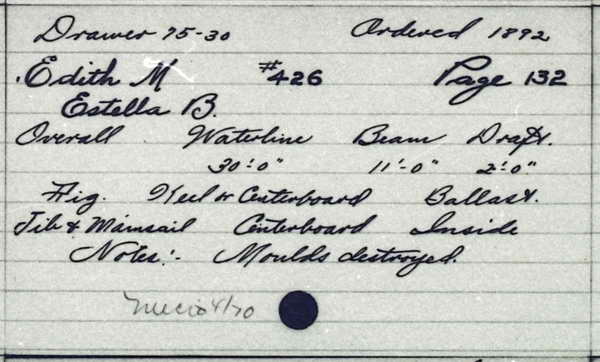 Drawer 75-30 Ordered 1892
Edith M #426 Page 132
Estella B.
Overall Waterline Beam Draft.
30'-0" 11'-0" 2'-0"
Rig. Keel or Centerboard Ballast.
Jib & Mainsail Centerboard Inside
Notes:- Moulds destroyed.
4/70